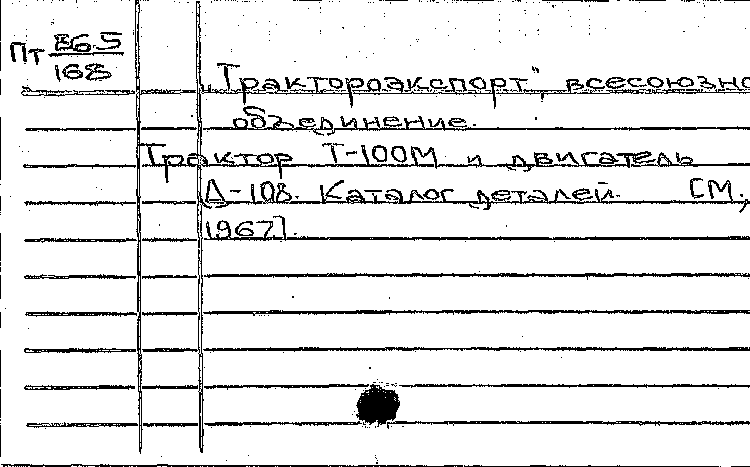 Пт В6.5
168
„Трактороэкспорт", всесоюзно
объединение.
Трактор Т-100М и двигатель
Д-108. Каталог деталей. [М.,
1967].